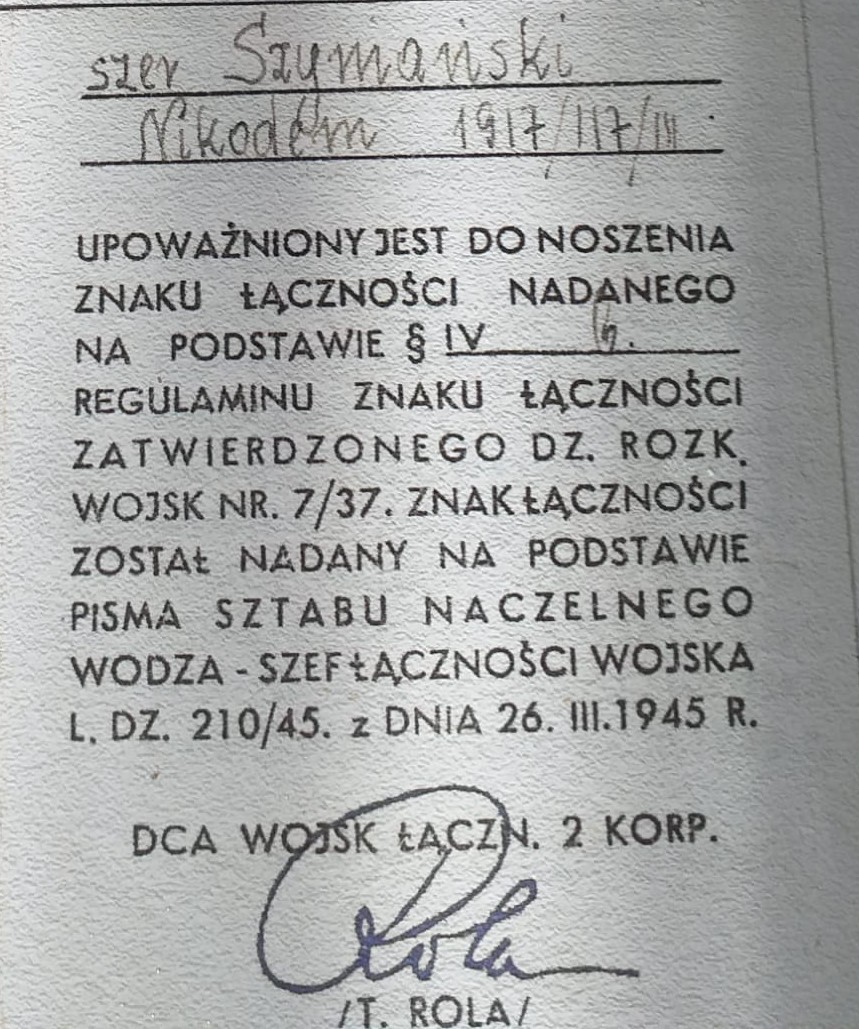 szer Szymański
Nikodem 1917/117/III
UPOWAŻNIONY JEST DO NOSZENIA
ZNAKU ŁĄCZNOŚCI NADANEGO
NA PODSTAWIE § IV b.
REGULAMINU ZNAKU ŁĄCZNOŚCI
ZATWIERDZONEGO DZ. ROZK.
WOJSK NR. 7/37. ZNAK ŁĄCZNOŚCI
ZOSTAŁ NADANY NA PODSTAWIE
PISMA SZTABU NACZELNEGO
WODZA - SZEF ŁĄCZNOŚCI WOJSKA
L. DZ. 210/45. z DNIA 26. III. 1945 R.
DCA WOJSK ŁĄCZN. 2 KORP.
Rola
/T. ROLA/